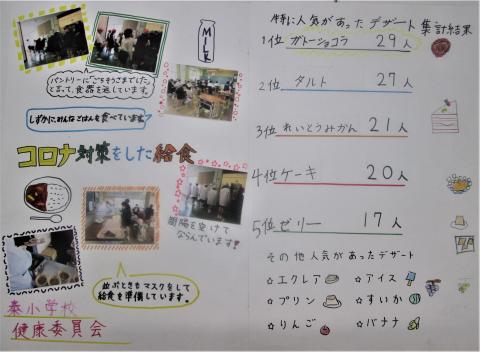 MILK
パントリーに「ごちそうさまでした」
と言って、食器を返しています。
しずかにみんなごはんを食べています!
コロナ対策をした給食
間隔を空けて
ならんでいます!
並ぶときもマスクをして
給食を準備しています。
秦小学校
健康委員会
特に人気があったデザート 集計結果
1位 ガトーショコラ 29人
2位 タルト 27人
3位 れいとうみかん 21人
4位 ケーキ 20人
5位 ゼリー 17人
その他人気があったデザート
☆エクレア ☆アイス
☆プリン ☆すいか
☆りんご ☆バナナ